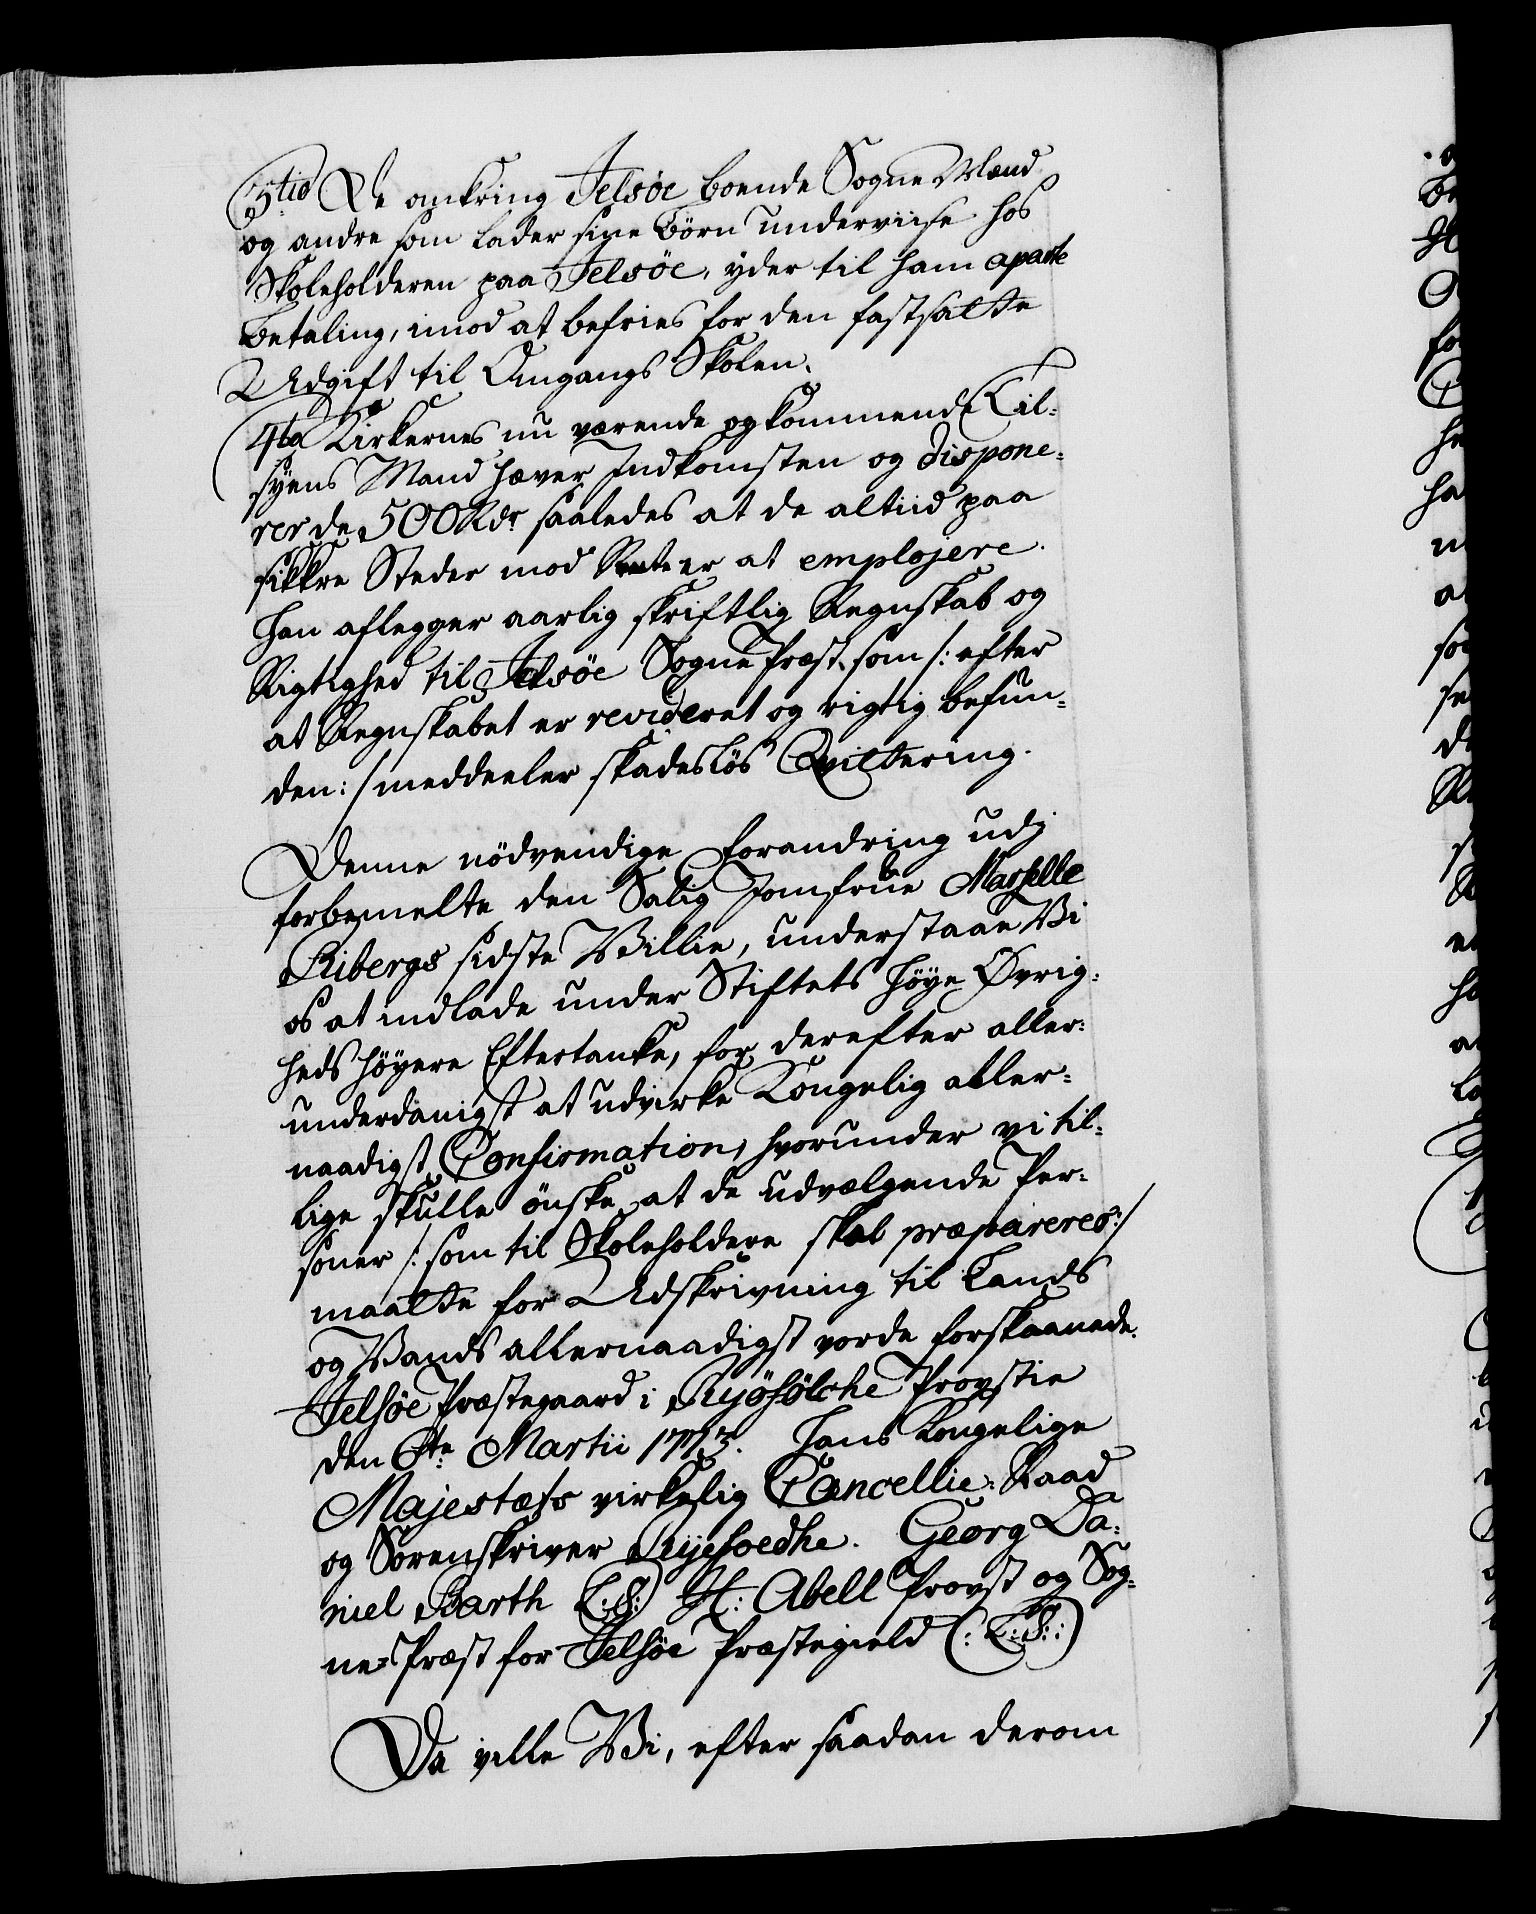 3tio De omkring Jelsöe boende Sogne Mænd
og andre som lader sine Börn underviise hos
Skoleholderen paa Jelsöe, yder til ham aparte
Betaling, imod at befries for den fastsatte
Udgift til Omgangs Skolen.
4to Kirkernes nu værende og kommende Til-
syens Mand hæver Indkomsten og dispone-
rer de 500 Rdr saaledes at de altiid paa
sikkre Steder mod Renter at emplojere.
Han aflegger aarlig skriftlig Regnskab og
Rigtighed til Jelsöe Sogne Præst, som /: efter
at Regnskabet er revideret og rigtig befun-
den :/ meddeeler skadeslös Qvittering.
Denne nödvendige Forandring udj
forbemelte den Salig Jomfrue Marselle
Ribergs sidste Villie, understaae Vi
os at indlade under Stiftets höye Øvrig-
heds höyere Eftertanke, for derefter aller-
underdanigst at udvirke Kongelig aller-
naadigst Confirmation, hvorunder vi til-
lige skulle önske at de udvælgende Per-
soner /: som til Skoleholdere skal præpareres :/
maatte for Udskrivning til Lands
og Vands allernaadigst vorde forskaanede.
Jelsöe Præstegaard i Ryöfölche Provstie
den 6te Martii 1773. Hans Kongelige
Majestæts virkelig Cancellie-Raad
og Sorenskriver Georg Da-
niel Barth (L.S.) H: Abell Provst og Sog-
ne-Præst for Jelsöe Præstegield (: L:S: :)
Da ville Vi, efter saadan derom